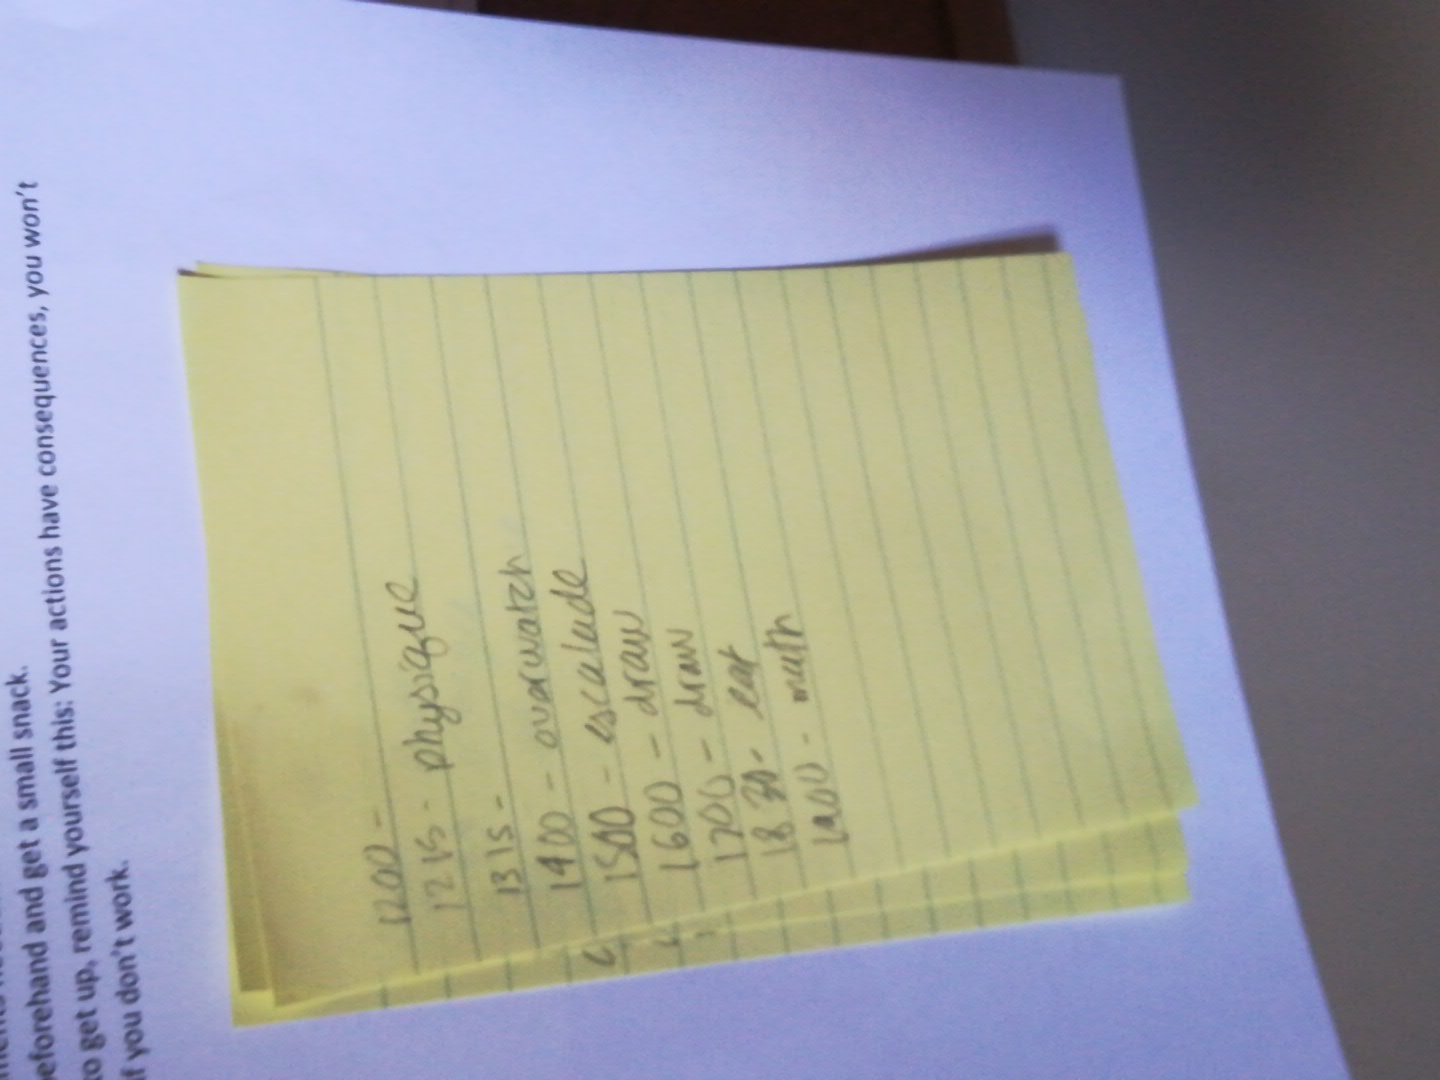 beforehand and get a small snack.
to get up, remind yourself this: Your actions have consequences, you won't
if you don't work.
1200 -
1215 - physique
1315 -
1400 - overwatch
1500 - escalade
1600 - draw
1700 - draw
1830 - eat
1900 - math